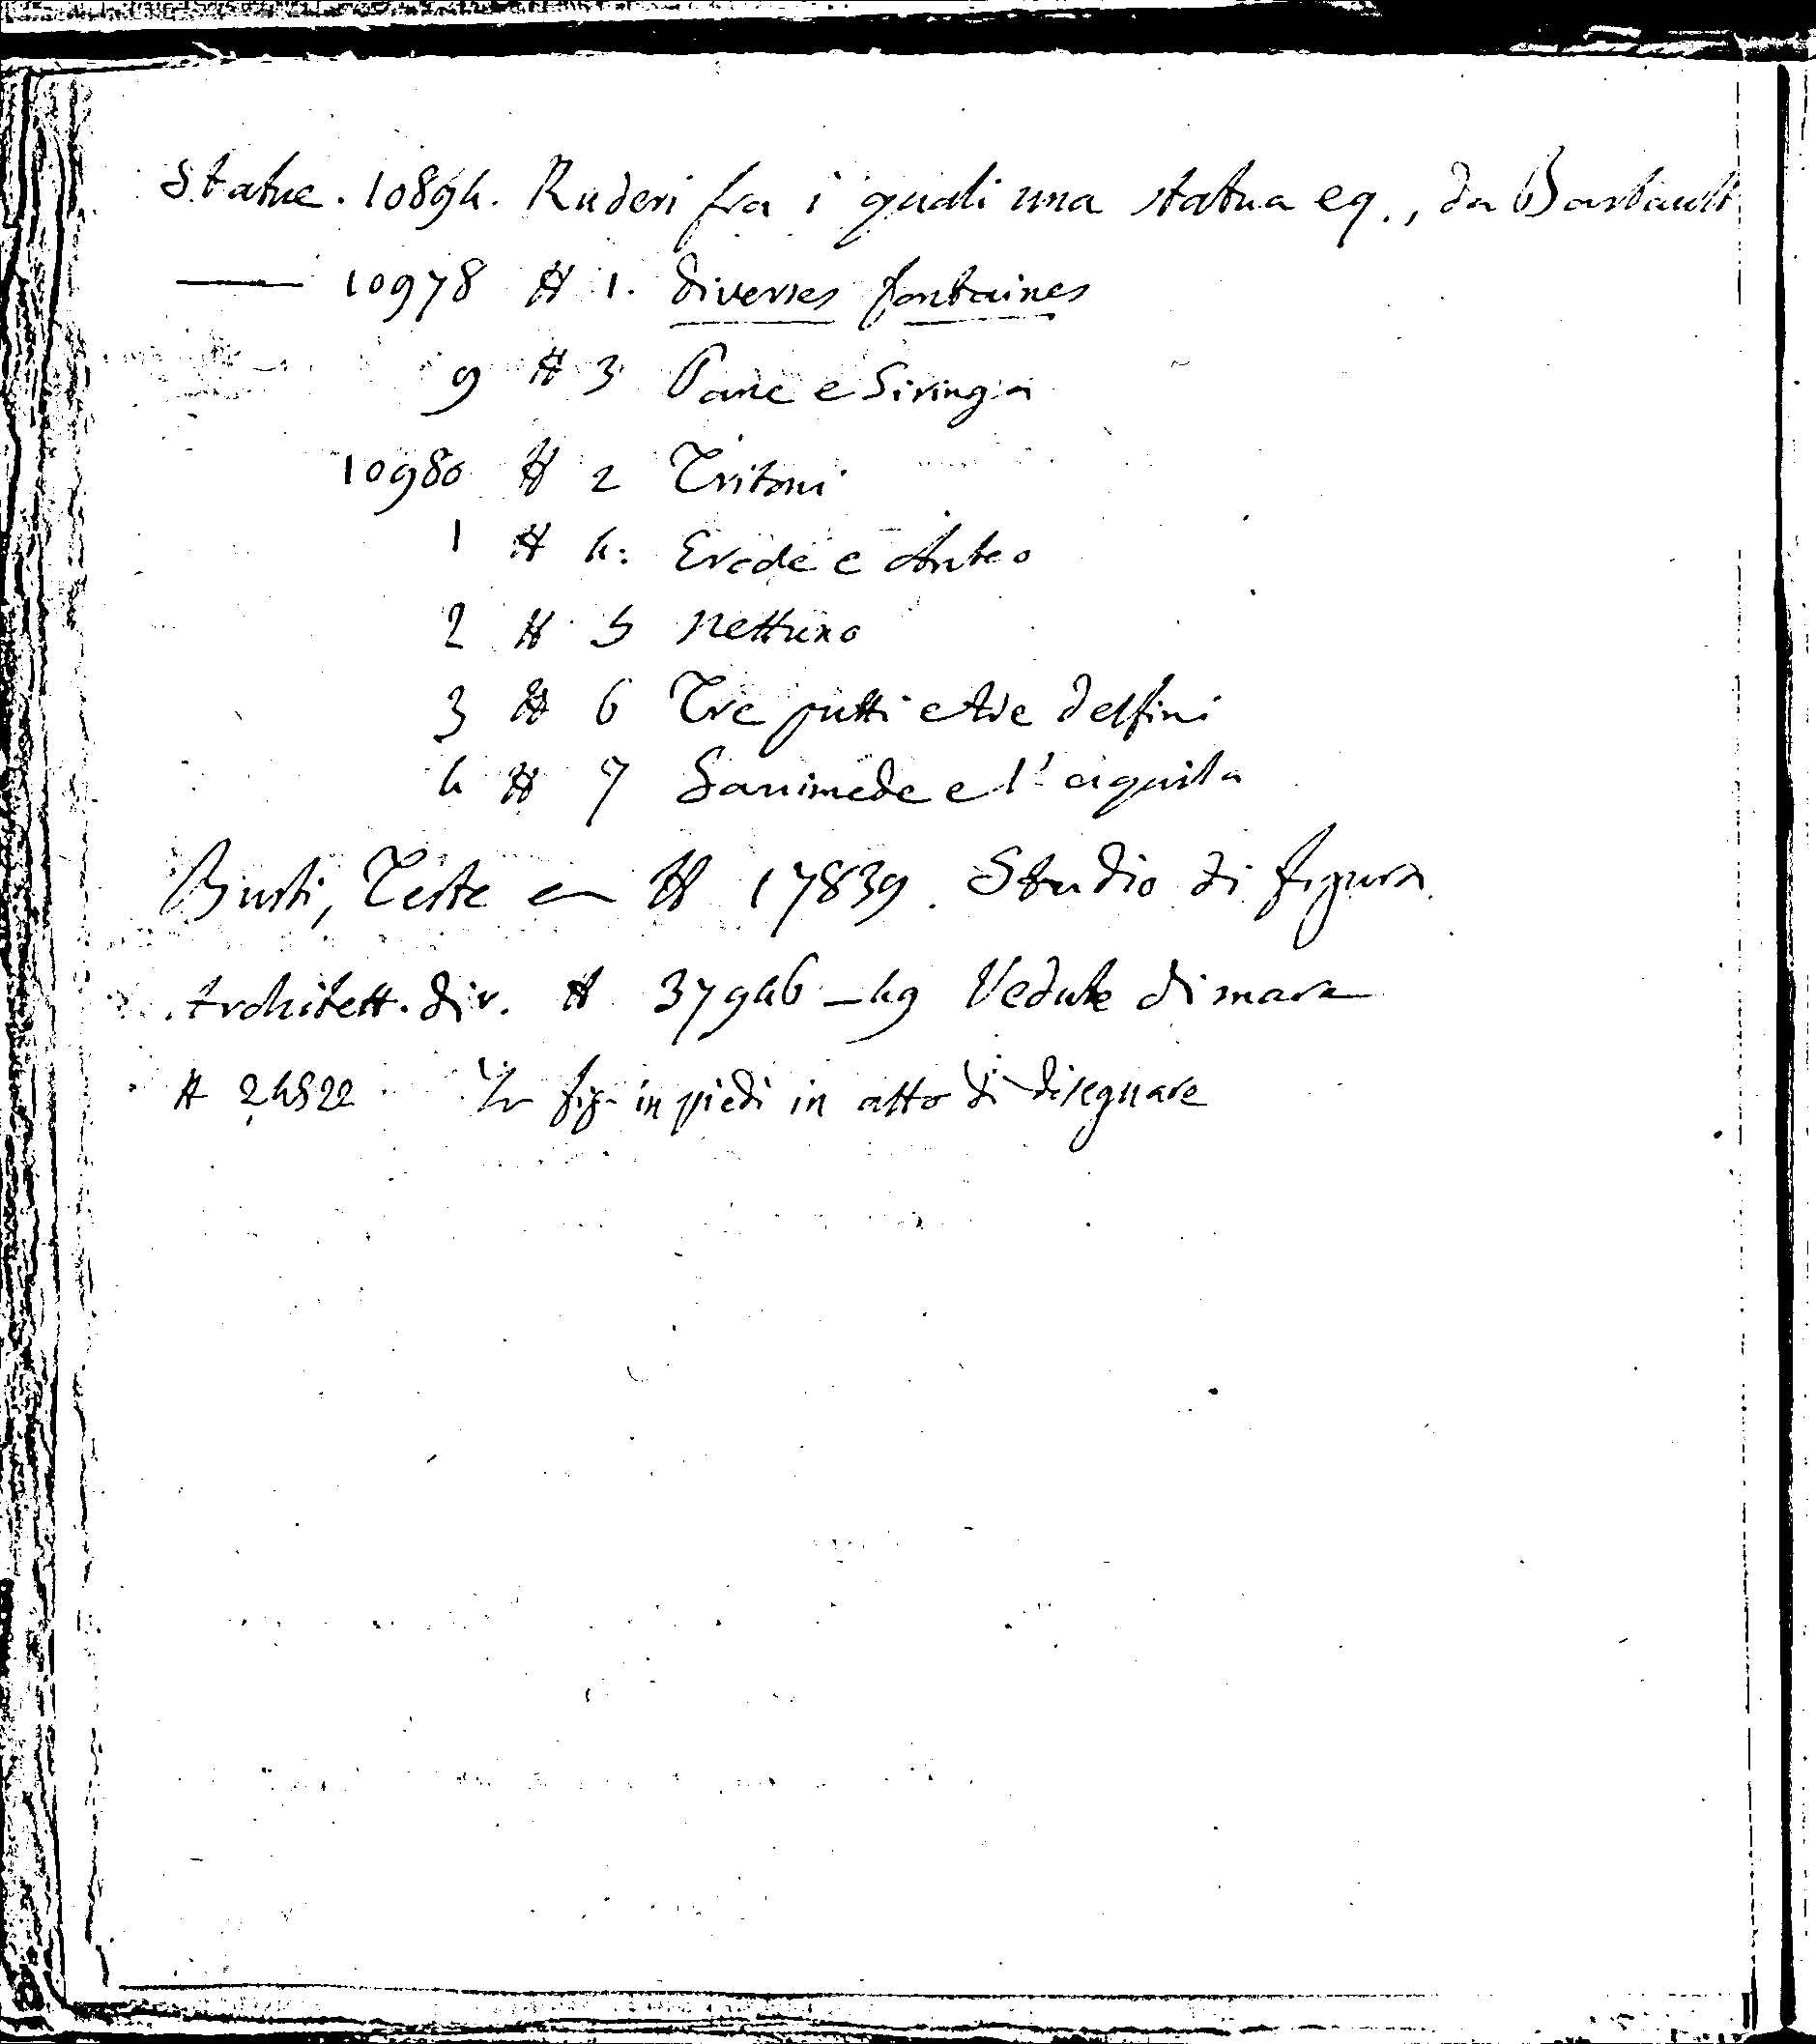 Statue. 10894. Ruderi fra i quali una statua eq., da Barbault
— 10978 # 1. Diverses fontaines
9 # 3 Pane e Siringa
10980 # 2 Tritoni
1 # 4. Ercole e Anteo
2 # 5 Nettuno
3 # 6 Tre putti e tre delfini
4 # 7 Ganimede e l'aquila
Busti, Teste # 17839. Studio di figura
Architett. div. # 37946 - 49 Vedute di mare
# 24522 fig. in piedi in atto di disegnare